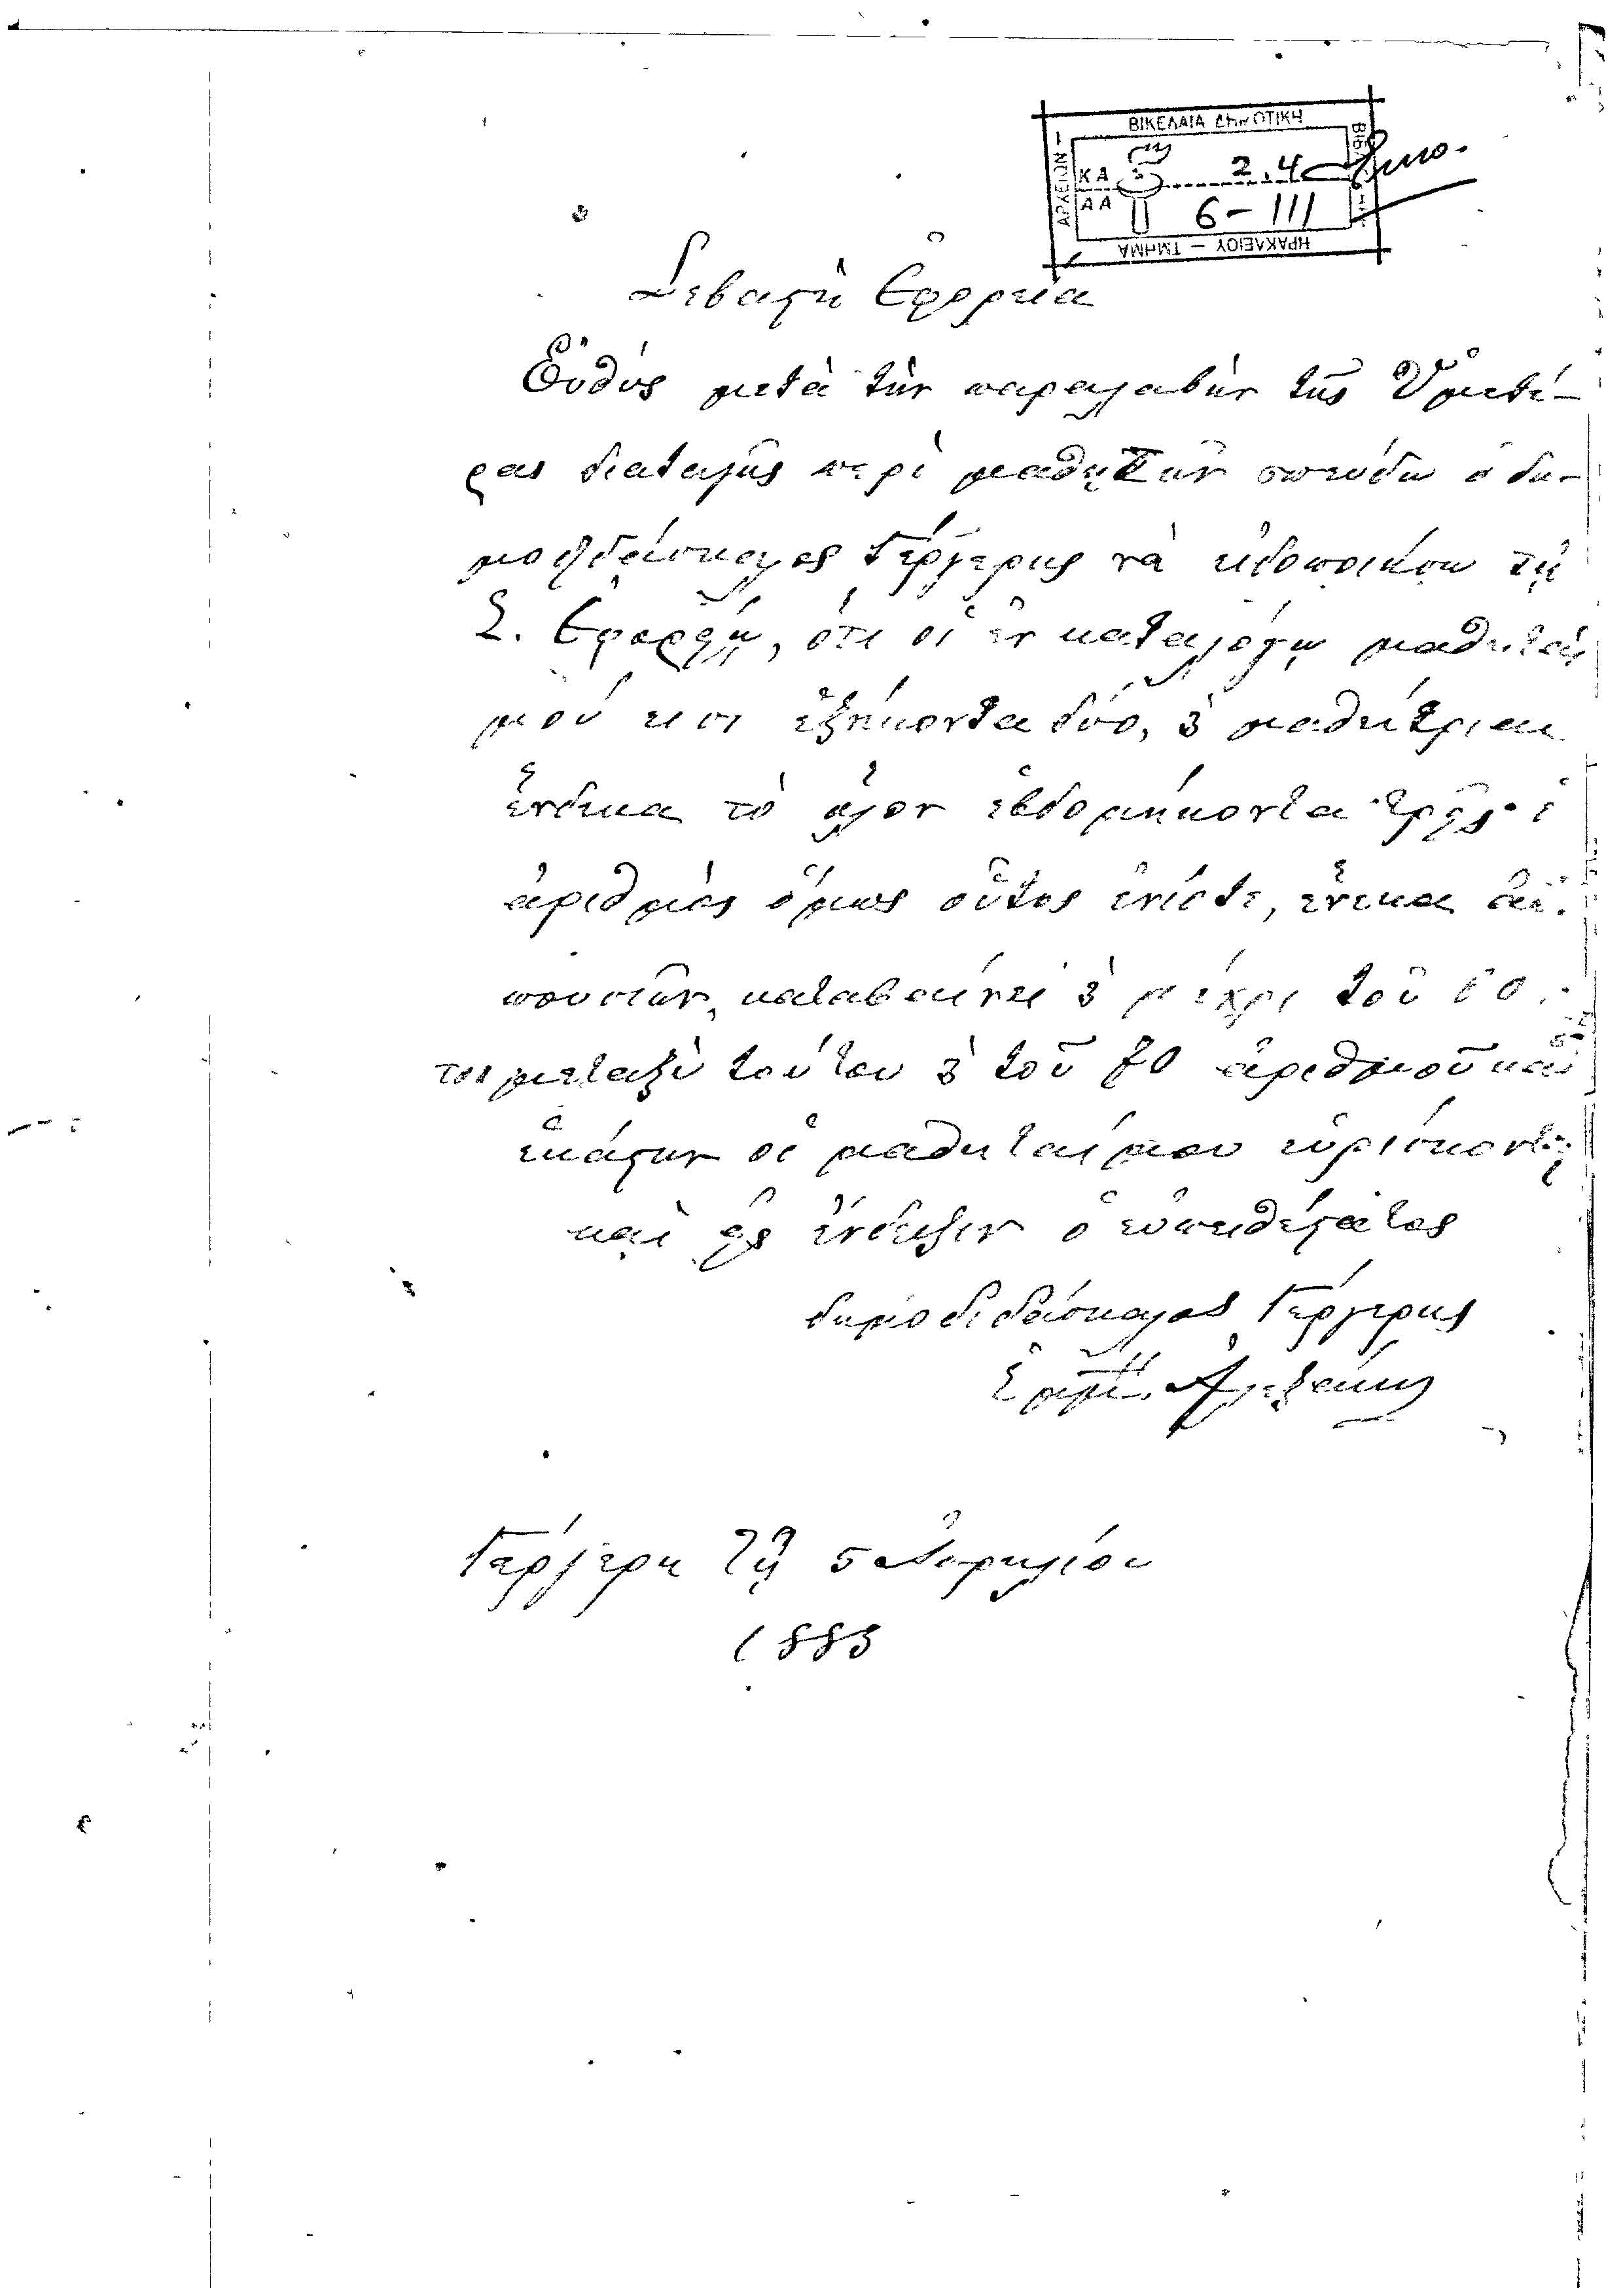 ΒΙΚΕΛΑΙΑ ΔΗΜΟΤΙΚΗ
ΑΡΧΕΙΩΝ —
ΚΑ 2.4
ΑΑ 6-111
ΗΡΑΚΛΕΙΟΥ — ΤΜΗΜΑ
Σεβαστὴ Ἐφορεία
Εὐθὺς μετὰ τὴν παραλαβὴν τῆς Ὑμετέ-
ρας διαταγῆς περὶ μαθητῶν σπεύδω ὁ δη-
μοδιδάσκαλος Γέργερης νὰ εἰδοποιήσω τῇ
Σ. Ἐφορείᾳ, ὅτι οἱ ἐν καταλόγῳ μαθηταί
μού εισι ἑξήκοντα δύο, ϗ μαθήτριαι
ἕνδεκα τὸ ὅλον ἑβδομήκοντα τρεῖς· ὁ
ἀριθμὸς ὅμως οὗτος ἐνίοτε, ἕνεκα ἀ-
πουσιῶν, καταβαίνει ϗ μέχρι τοῦ 60.
μεταξὺ τούτου ϗ τοῦ 70 ἀριθμοῦ κα
ἑκάστην οἱ μαθηταί μου εὑρίσκονται
καὶ εἰς ἔνδειξιν ὁ εὐπειθέστατος
δημοδιδάσκαλος Γέργερης
Ἐμμ. Ἀλεξάκης
Γέργερη τῇ 5 Ἀπριλίου
1883